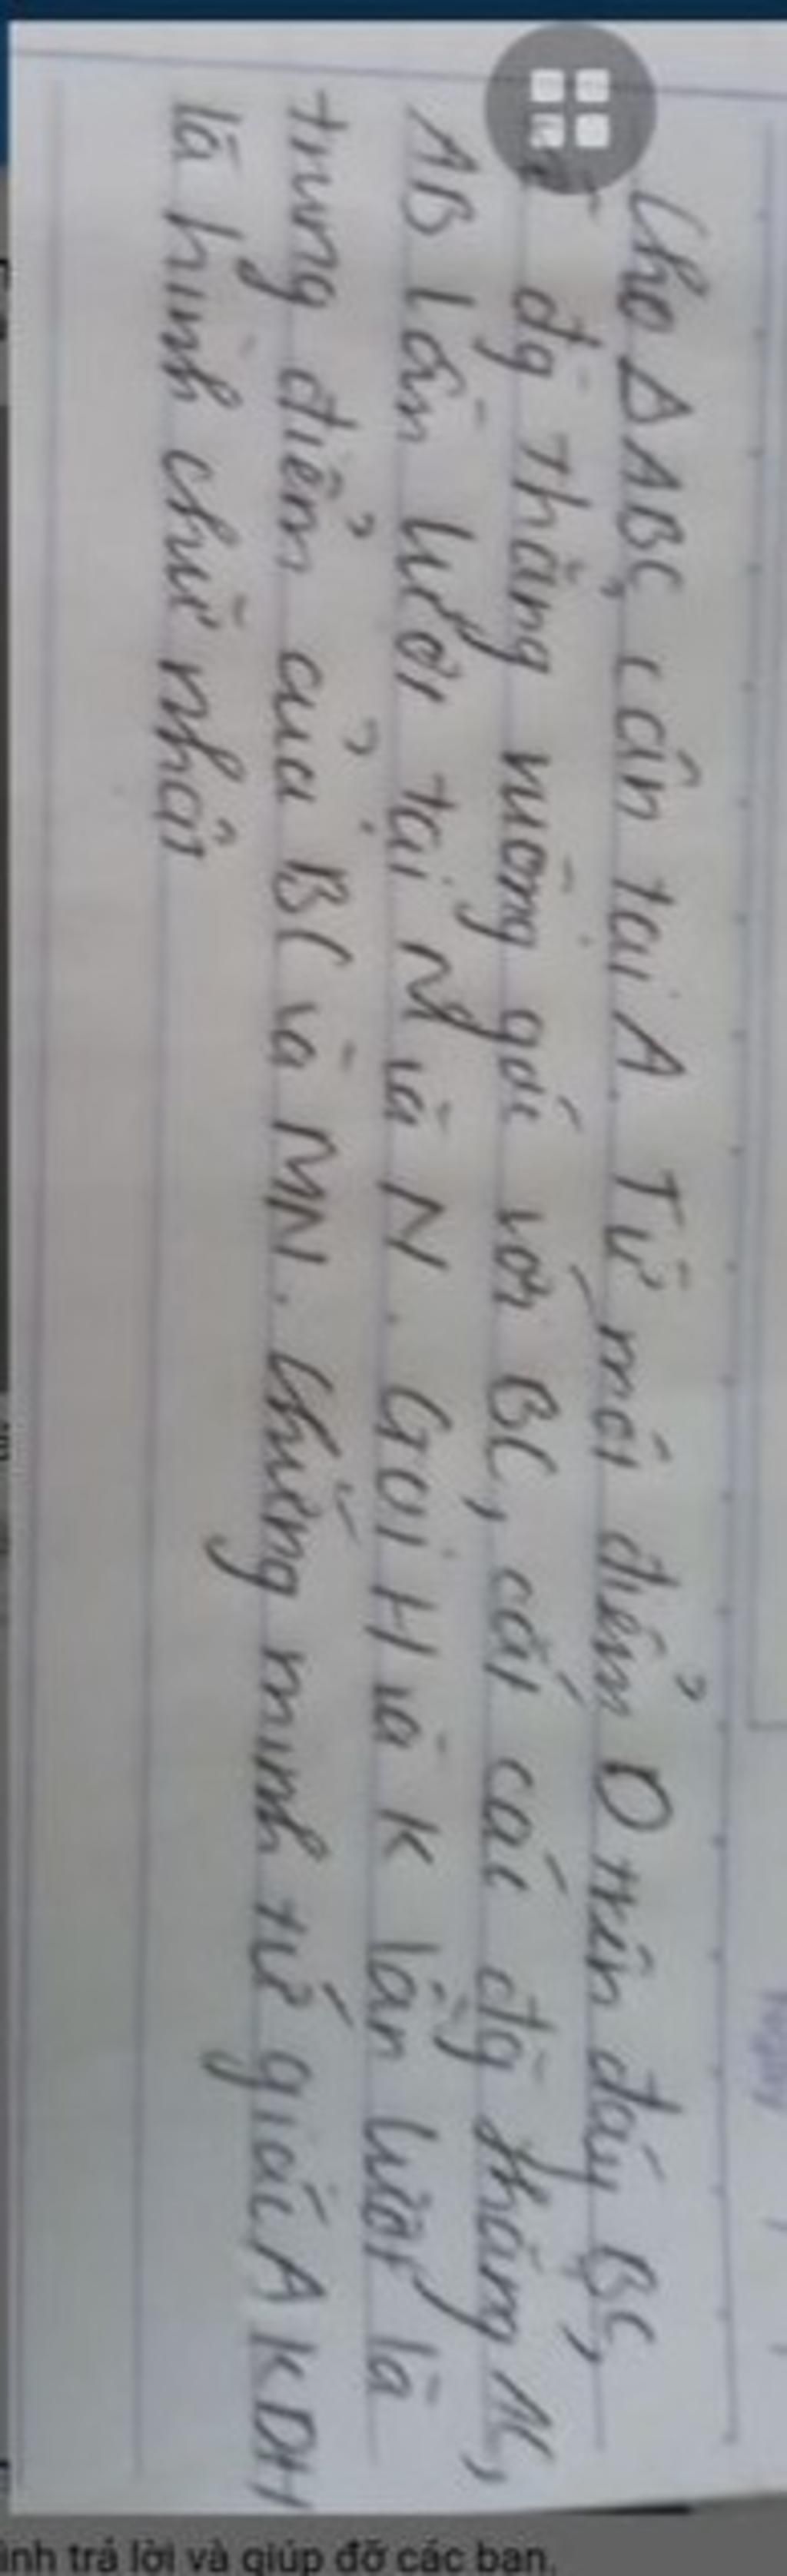 Cho ΔABC, cân tại A. Từ mỗi điểm D trên đáy BC,
đg thẳng vuông góc với BC, cắt các đg thẳng AC,
AB lần lượt tại M và N. Gọi H và K lần lượt là
trung điểm của BC và MN. Chứng minh tứ giác AKDH
là hình chữ nhật
ình trả lời và giúp đỡ các bạn.